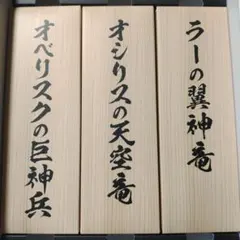 ラーの翼神竜
オシリスの天空竜
オベリスクの巨神兵